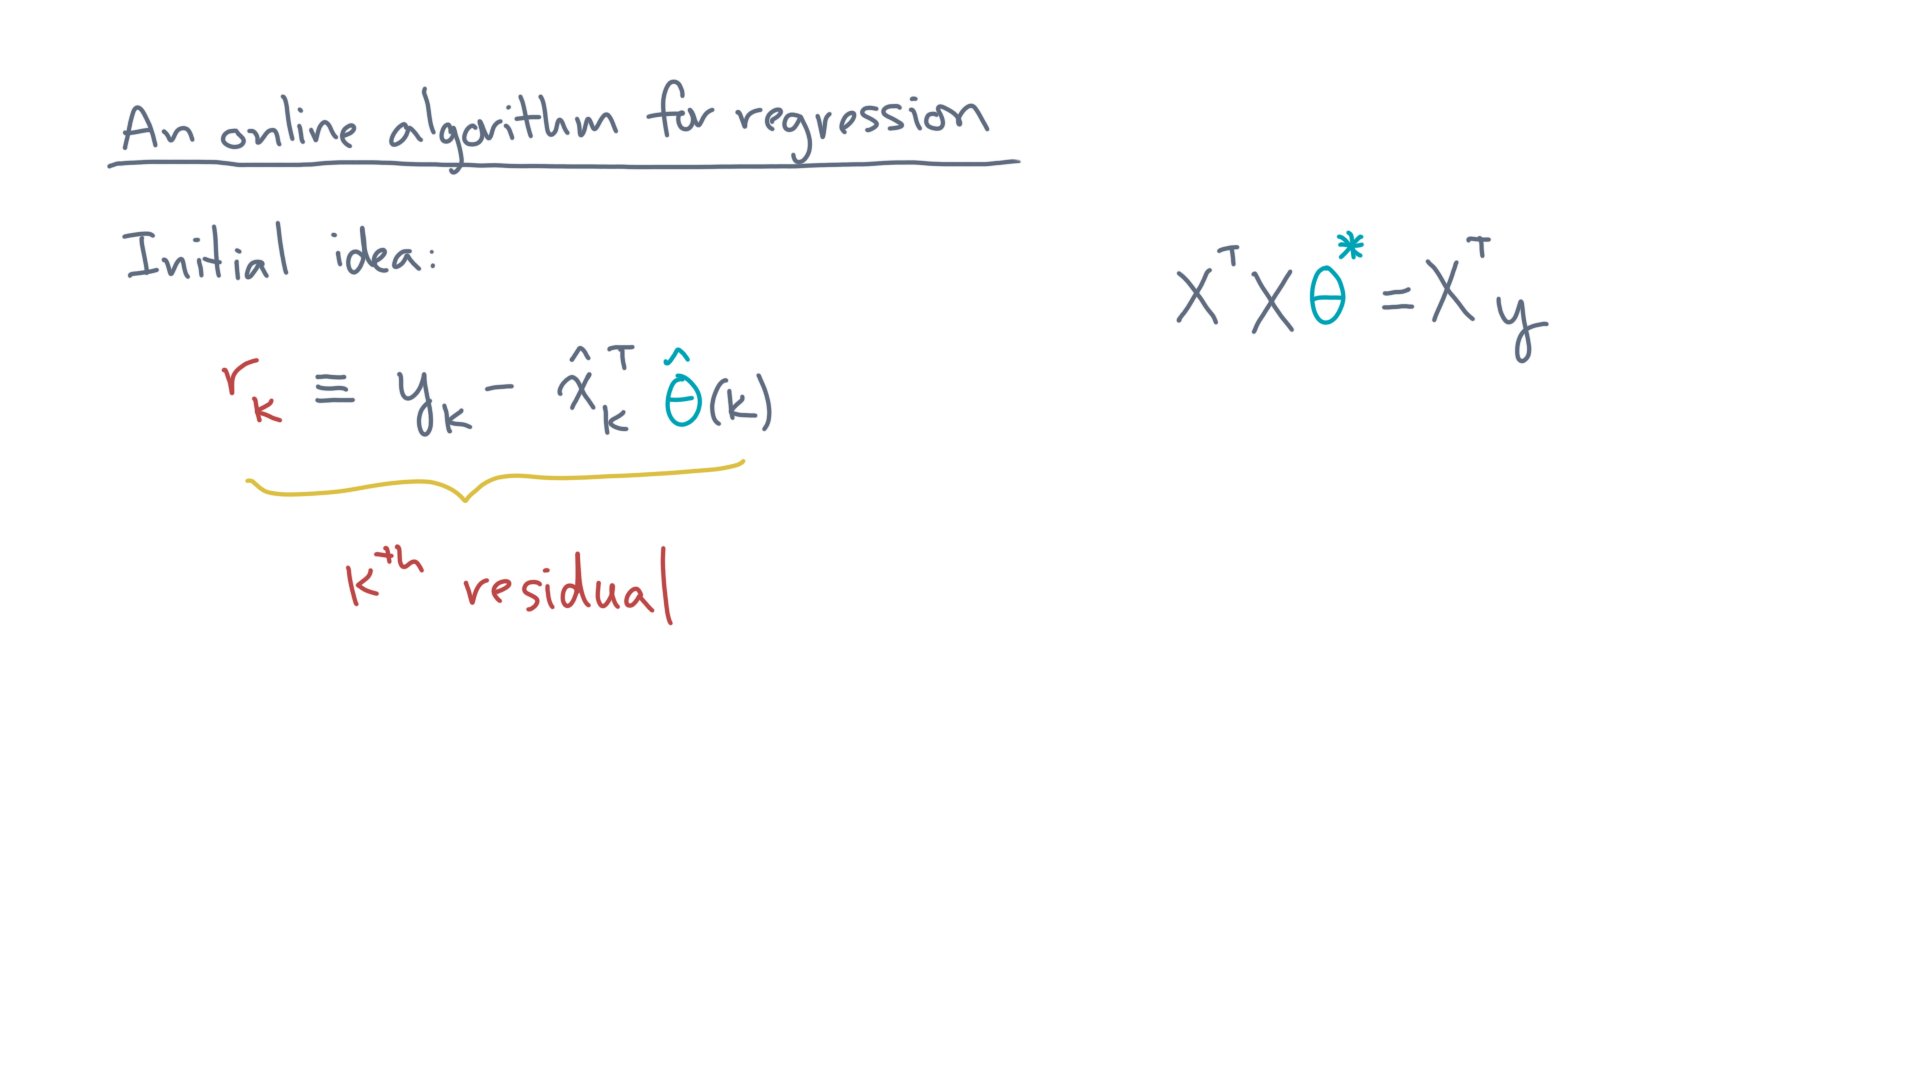 An online algorithm for regression
Initial idea:
r_k ≡ y_k - x̂_k^T θ̂(k)
k^th residual
X^T X θ^* = X^T y